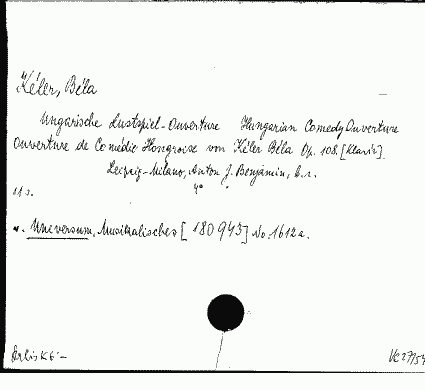 Kéler, Béla
Ungarische Lustspiel-Ouverture Hungarian Comedy Ouverture
Ouverture de Comédie Hongroise von Kéler Béla Op. 108. [Klavir].
Leipzig-Milano, Anton J. Benjamin, b.r.
4°
11 s.
Universum, Musikalisches [180943] No. 1612a.
Kčs 6.–